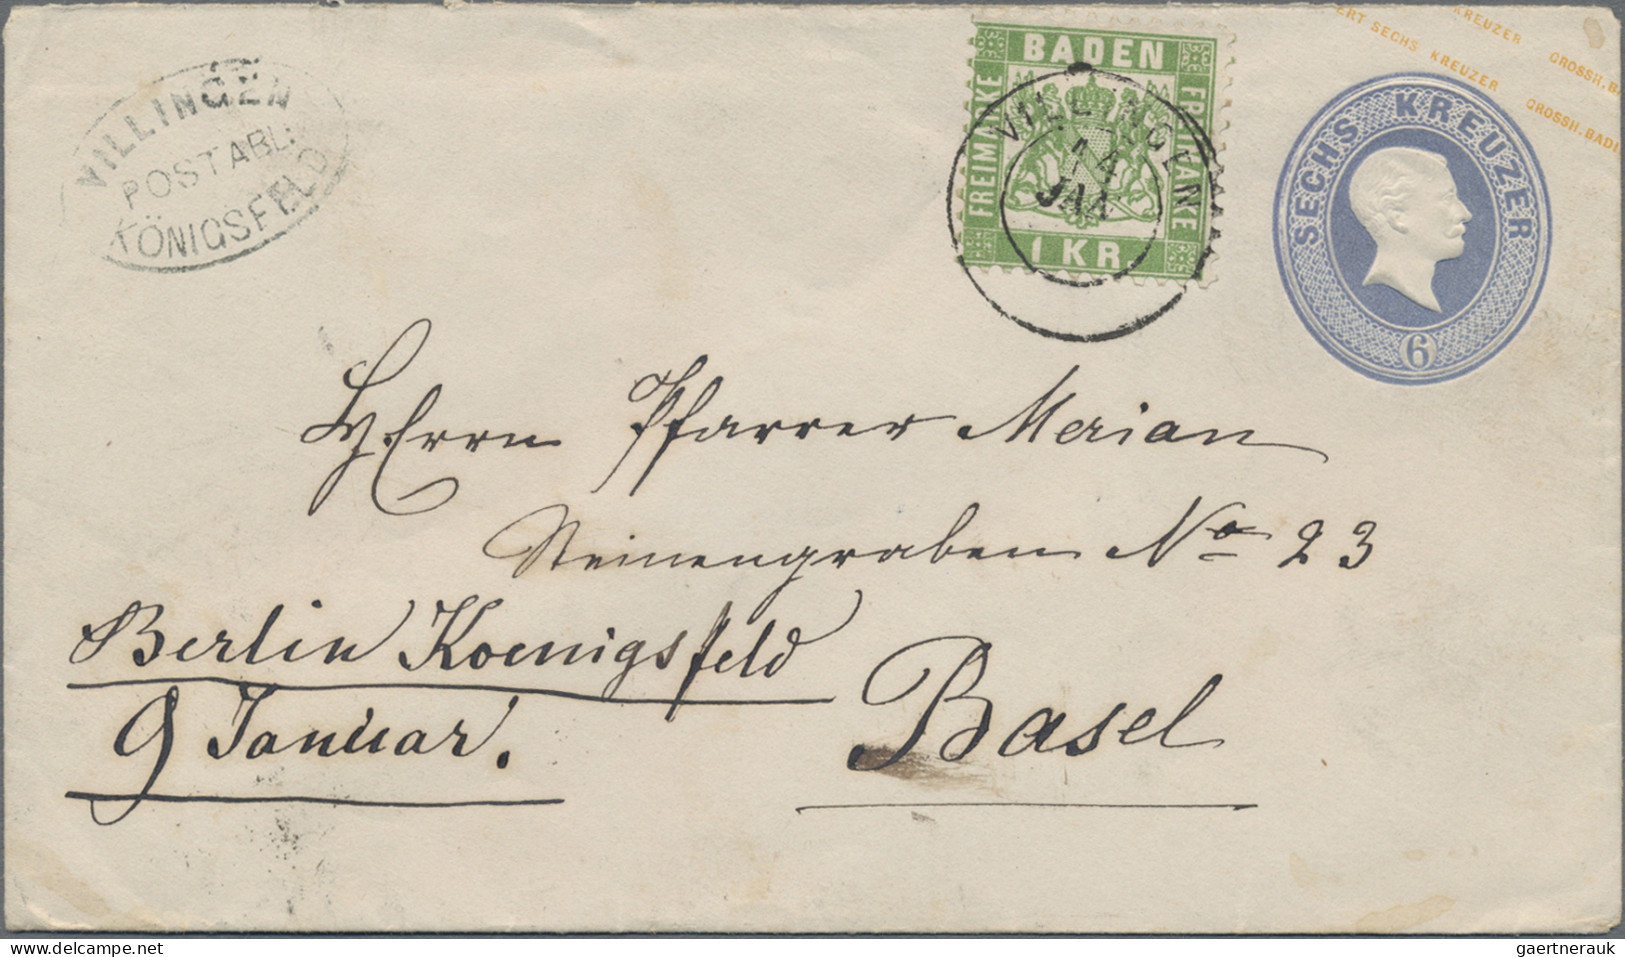 VILLINGEN
POSTABL:
KÖNIGSFELD
BADEN
FREIMARKE
FREIMARKE
1 KR.
VILLINGEN
14
JAN
KREUZER GROSSH.BA
ERT SECHS KREUZER GROSSH.BADI
SECHS KREUZER
6
Herrn Pfarrer Merian
Steinengraben No 23
Berlin Koenigsfeld
9 Januar.
Basel
gaertnerauk
www.delcampe.net